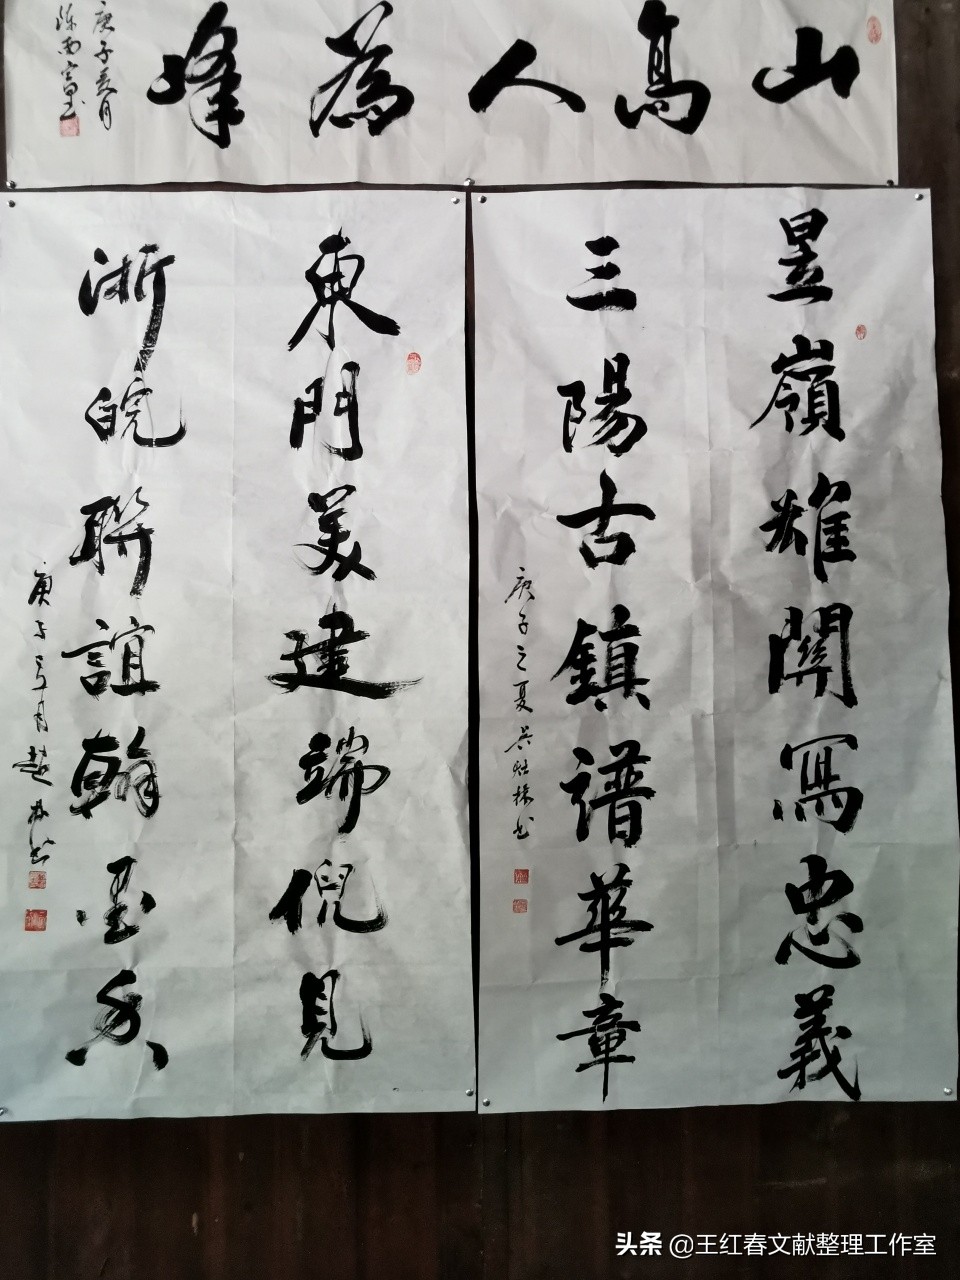 山高人為峰
庚子夏月
陈雨富书
昱嶺雄關寫忠義
三陽古鎮谱華章
庚子之夏吴灶操书
東門美建端倪見
浙皖聯誼翰墨香
庚子夏月趙
头条 @王红春文献整理工作室